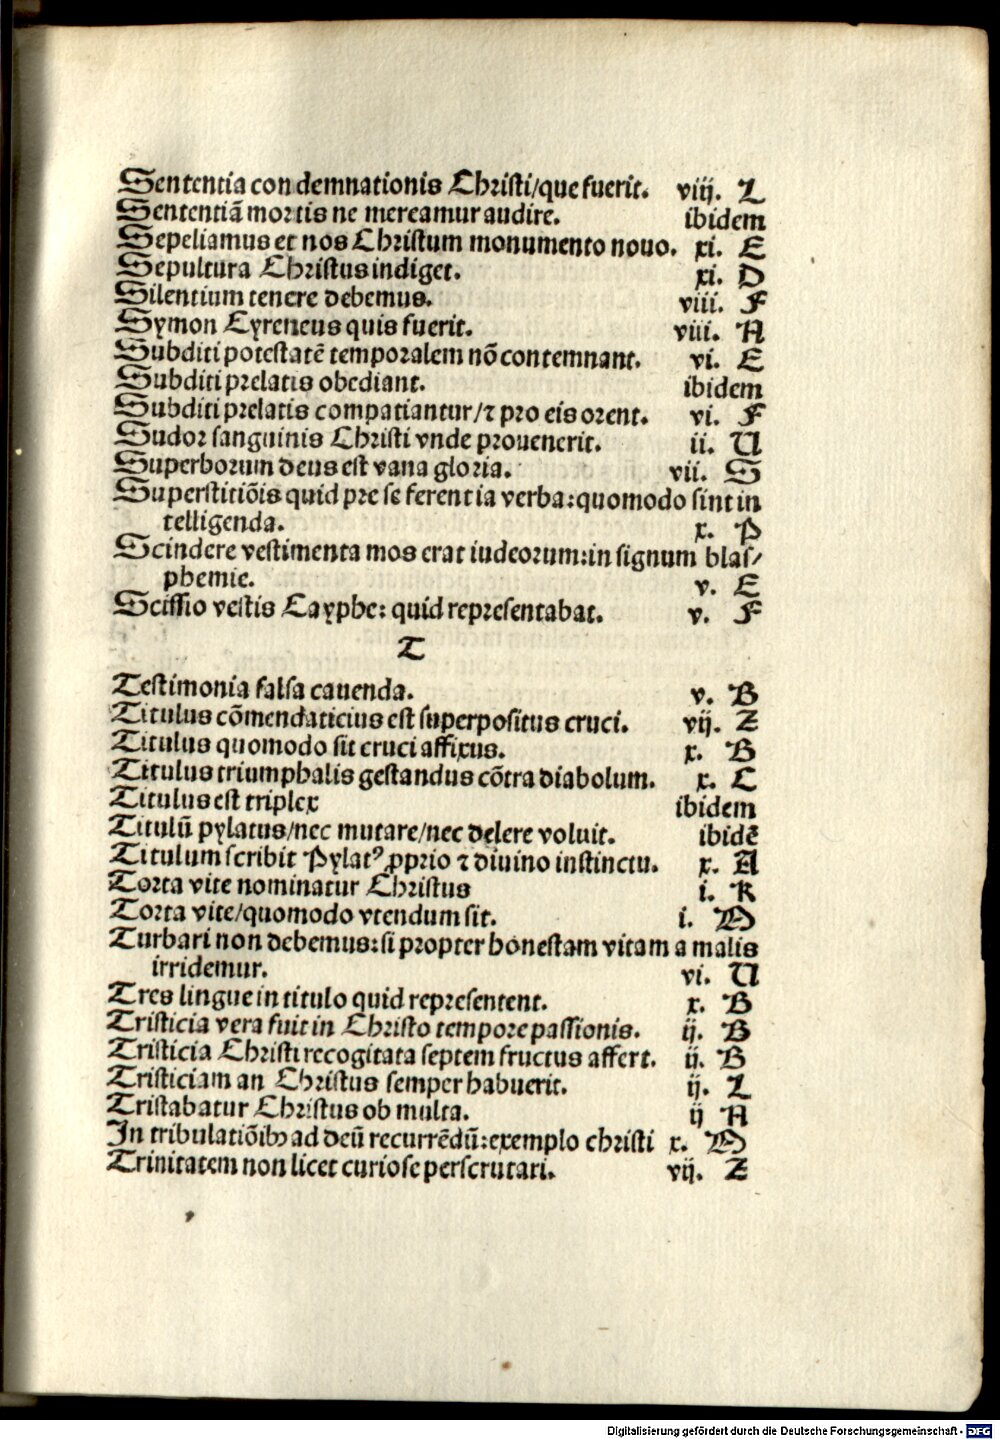 Sententia condemnationis Christi/que fuerit. viij. L
Sententiã mortis ne mereamur audire. ibidem
Sepeliamus et nos Christum monumento nouo. xi. E
Sepultura Christus indiget. xi. D
Silentium tenere debemus. viii. F
Symon Cyreneus quis fuerit. viii. A
Subditi potestatẽ temporalem nõ contemnant. vi. E
Subditi prelatis obediant. ibidem
Subditi prelatis compatiantur/⁊ pro eis orent. vi. F
Sudor sanguinis Christi vnde prouenerit. ii. U
Superborum deus est vana gloria. vii. S
Superstitiõis quid pre se ferentia verba:quomodo sint in
telligenda. x. P
Scindere vestimenta mos erat iudeorum:in signum blas/
phemie. v. E
Scissio vestis Cayphe: quid representabat. v. F
T
Testimonia falsa cauenda. v. B
Titulus cõmendaticius est superpositus cruci. vij. Z
Titulus quomodo sit cruci affixus. x. B
Titulus triumphalis gestandus cõtra diabolum. x. C
Titulus est triplex ibidem
Titulũ pylatus/nec mutare/nec delere voluit. ibidẽ
Titulum scribit Pylatꝰ ꝓprio ⁊ diuino instinctu. x. A
Torta vite nominatur Christus i. K
Torta vite/quomodo vtendum sit. i. M
Turbari non debemus:si propter honestam vitam a malis
irridemur. vi. U
Tres lingue in titulo quid representent. x. B
Tristicia vera fuit in Christo tempore passionis. ij. B
Tristicia Christi recogitata septem fructus affert. ij. B
Tristiciam an Christus semper habuerit. ij. L
Tristabatur Christus ob multa. ij A
In tribulatiõibꝫ ad deũ recurrẽdũ:exemplo christi x. M
Trinitatem non licet curiose perscrutari. vij. Z
Digitalisierung gefördert durch die Deutsche Forschungsgemeinschaft - DFG